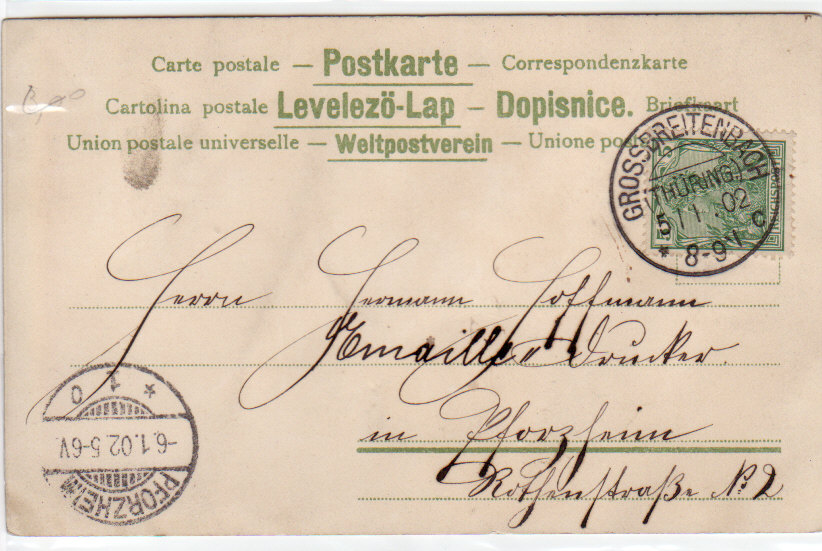 Carte postale — Postkarte — Correspondenzkarte
Cartolina postale Levelezö-Lap – Dopisnice. Briefkaart
Union postale universelle — Weltpostverein — Unione post
GROSSBREITENBACH
(THÜRING.)
5 1 02
* 8-9 V. c
Herrn Hermann Hoffmann
Emaille-Drucker
in Pforzheim
Rothenstraße No 2
* 1 0
-6.1.02.5-6V.
PFORZHEIM